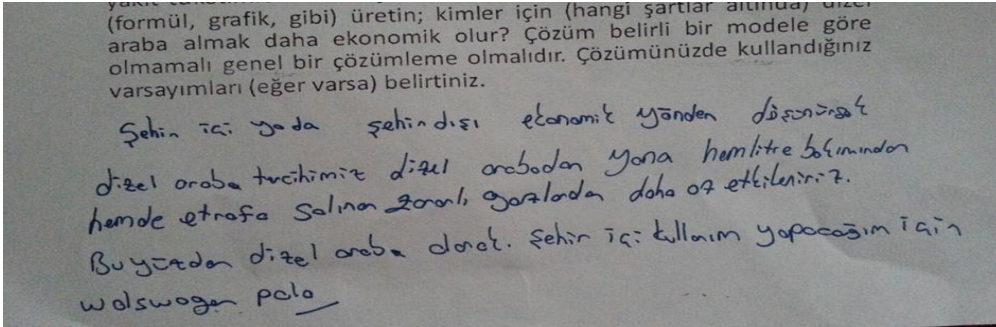 yakıt tüketim
(formül, grafik, gibi) üretin; kimler için (hangi şartlar altında) dizel
araba almak daha ekonomik olur? Çözüm belirli bir modele göre
olmamalı genel bir çözümleme olmalıdır. Çözümünüzde kullandığınız
varsayımları (eğer varsa) belirtiniz.
Şehin içi yada şehindışı ekonomik yönden düşünürsek
dizel araba tercihimiz dizel arabadan yana hemlitre bakımından
hemde etrafa salınan zararlı gazlardan daha az etkileniriz.
Bu yüzden dizel araba alarak. Şehir içi kullanım yapacağım için
wolswogen polo